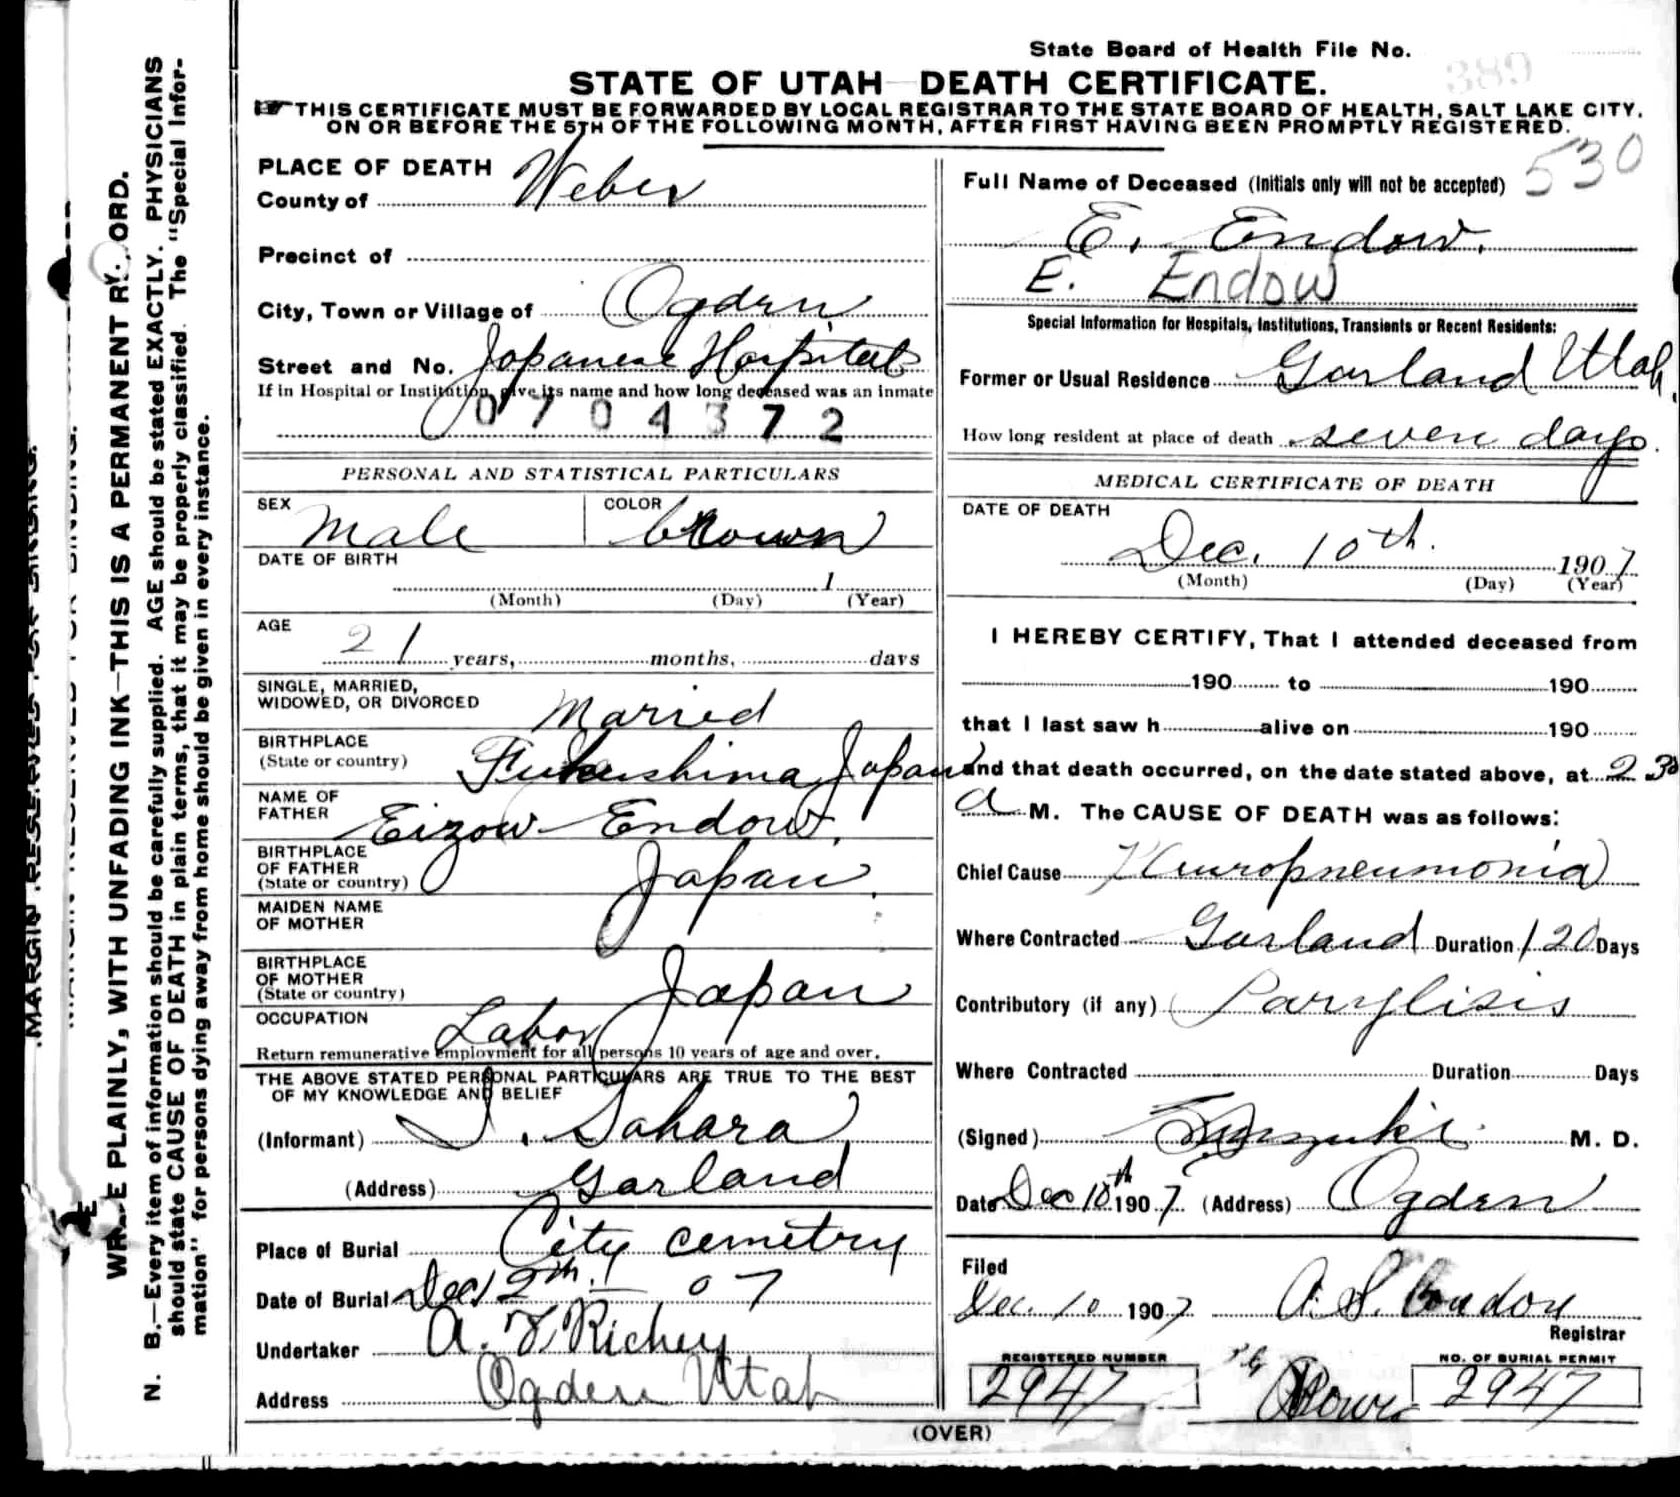 State Board of Health File No.
389
STATE OF UTAH DEATH CERTIFICATE.
THIS CERTIFICATE MUST BE FORWARDED BY LOCAL REGISTRAR TO THE STATE BOARD OF HEALTH, SALT LAKE CITY,
ON OR BEFORE THE 5TH OF THE FOLLOWING MONTH, AFTER FIRST HAVING BEEN PROMPTLY REGISTERED.
530
MARGIN RESERVED FOR BINDING.
PLAINLY, WITH UNFADING INK—THIS IS A PERMANENT
N. B.—Every item of information should be carefully supplied. AGE should be stated EXACTLY. PHYSICIANS
should state CAUSE OF DEATH in plain terms, that it may be properly classified. The "Special Infor-
mation" for persons dying away from home should be given in every instance.
PLACE OF DEATH
County of Weber
Precinct of
City, Town or Village of Ogden
Street and No. Japanese Hospital
If in Hospital or Institution, give its name and how long deceased was an inmate
0704372
PERSONAL AND STATISTICAL PARTICULARS
SEX Male COLOR brown
DATE OF BIRTH
1
(Month) (Day) (Year)
AGE
21 years, months, days
SINGLE, MARRIED,
WIDOWED, OR DIVORCED Maried
BIRTHPLACE
(State or country) Fukushima Japan
NAME OF
FATHER Eizow Endow.
BIRTHPLACE
OF FATHER
(State or country) Japan.
MAIDEN NAME
OF MOTHER
BIRTHPLACE
OF MOTHER
(State or country) Japan
OCCUPATION Labor
Return remunerative employment for all persons 10 years of age and over.
THE ABOVE STATED PERSONAL PARTICULARS ARE TRUE TO THE BEST
OF MY KNOWLEDGE AND BELIEF
(Informant) Sahara
(Address) Garland
Place of Burial City cemetry
Date of Burial Dec 12th. 07
Undertaker A. Richey
Address Ogden Utah
Full Name of Deceased (Initials only will not be accepted)
E. Endow.
E. Endow
Special Information for Hospitals, Institutions, Transients or Recent Residents:
Former or Usual Residence Garland Utah.
How long resident at place of death seven days.
MEDICAL CERTIFICATE OF DEATH
DATE OF DEATH
Dec. 10th. 1907
(Month) (Day) (Year)
I HEREBY CERTIFY, That I attended deceased from
190 to 190
that I last saw h alive on 190
and that death occurred, on the date stated above, at 2 30
a M. The CAUSE OF DEATH was as follows:
Chief Cause Pleuropneumonia
Where Contracted Garland Duration 120 Days
Contributory (if any) Parylisis
Where Contracted Duration Days
(Signed) Suzuki M. D.
Date Dec 10th 1907. (Address) Ogden
Filed
Dec. 10 1907 A. S. Condon
Registrar
REGISTERED NUMBER
2947
NO. OF BURIAL PERMIT
2947
(OVER)